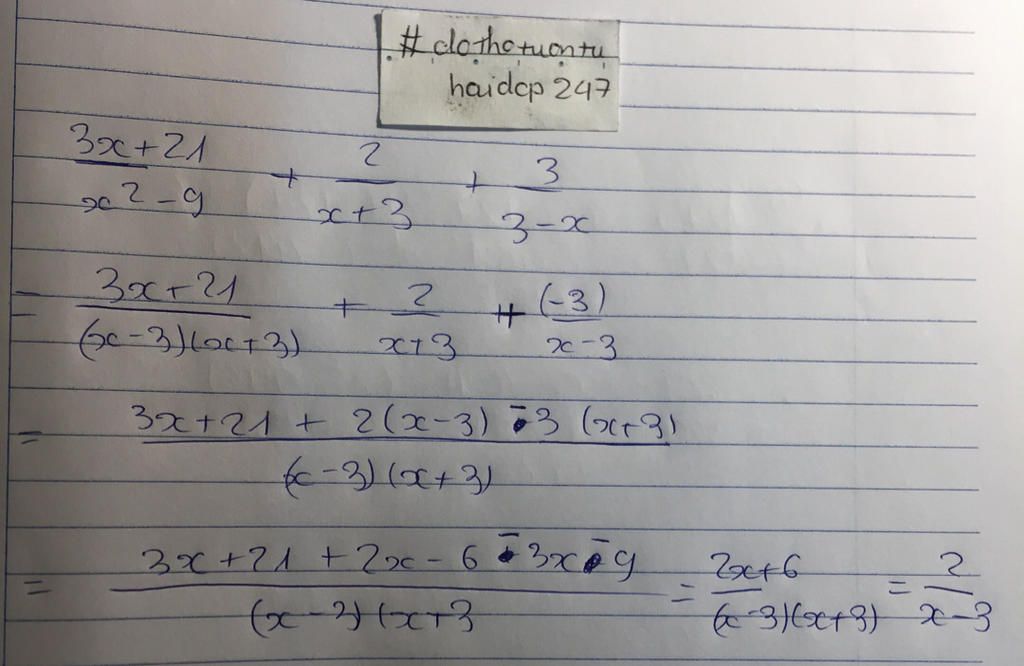 # clothotuontu
haidcp 247
3x+21 / x² - 9 + 2 / x+3 + 3 / 3-x
= 3x+21 / (x-3)(x+3) + 2 / x+3 + (-3) / x-3
= 3x+21 + 2(x-3) - 3 (x+3) / (x-3)(x+3)
= 3x+21 + 2x - 6 - 3x - 9 / (x-3)(x+3 = 2x+6 / (x-3)(x+3) = 2 / x-3